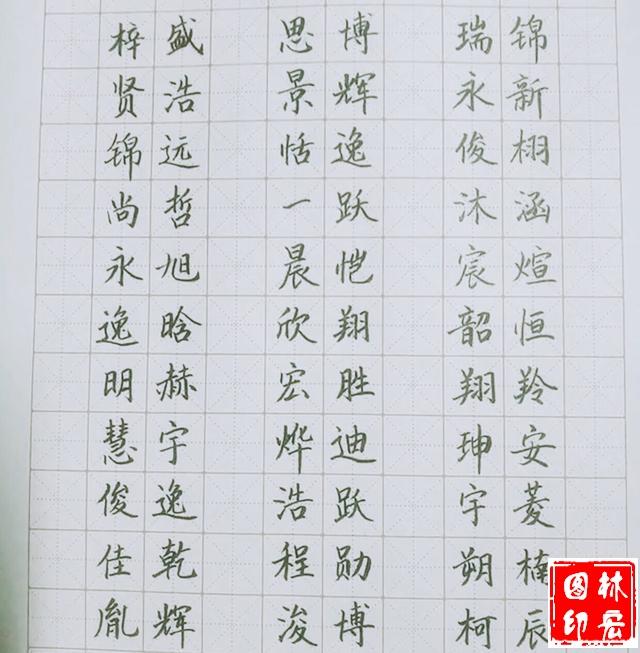 梓盛 思博 瑞锦
贤浩 景辉 永新
锦远 恬逸 俊栩
尚哲 一跃 沐涵
永旭 晨恺 宸煊
逸晗 欣翔 韶恒
明赫 宏胜 翔羚
慧宇 烨迪 珅安
俊逸 浩跃 宇菱
佳乾 程勋 朔楠
胤辉 浚博 柯辰
图林
印宏